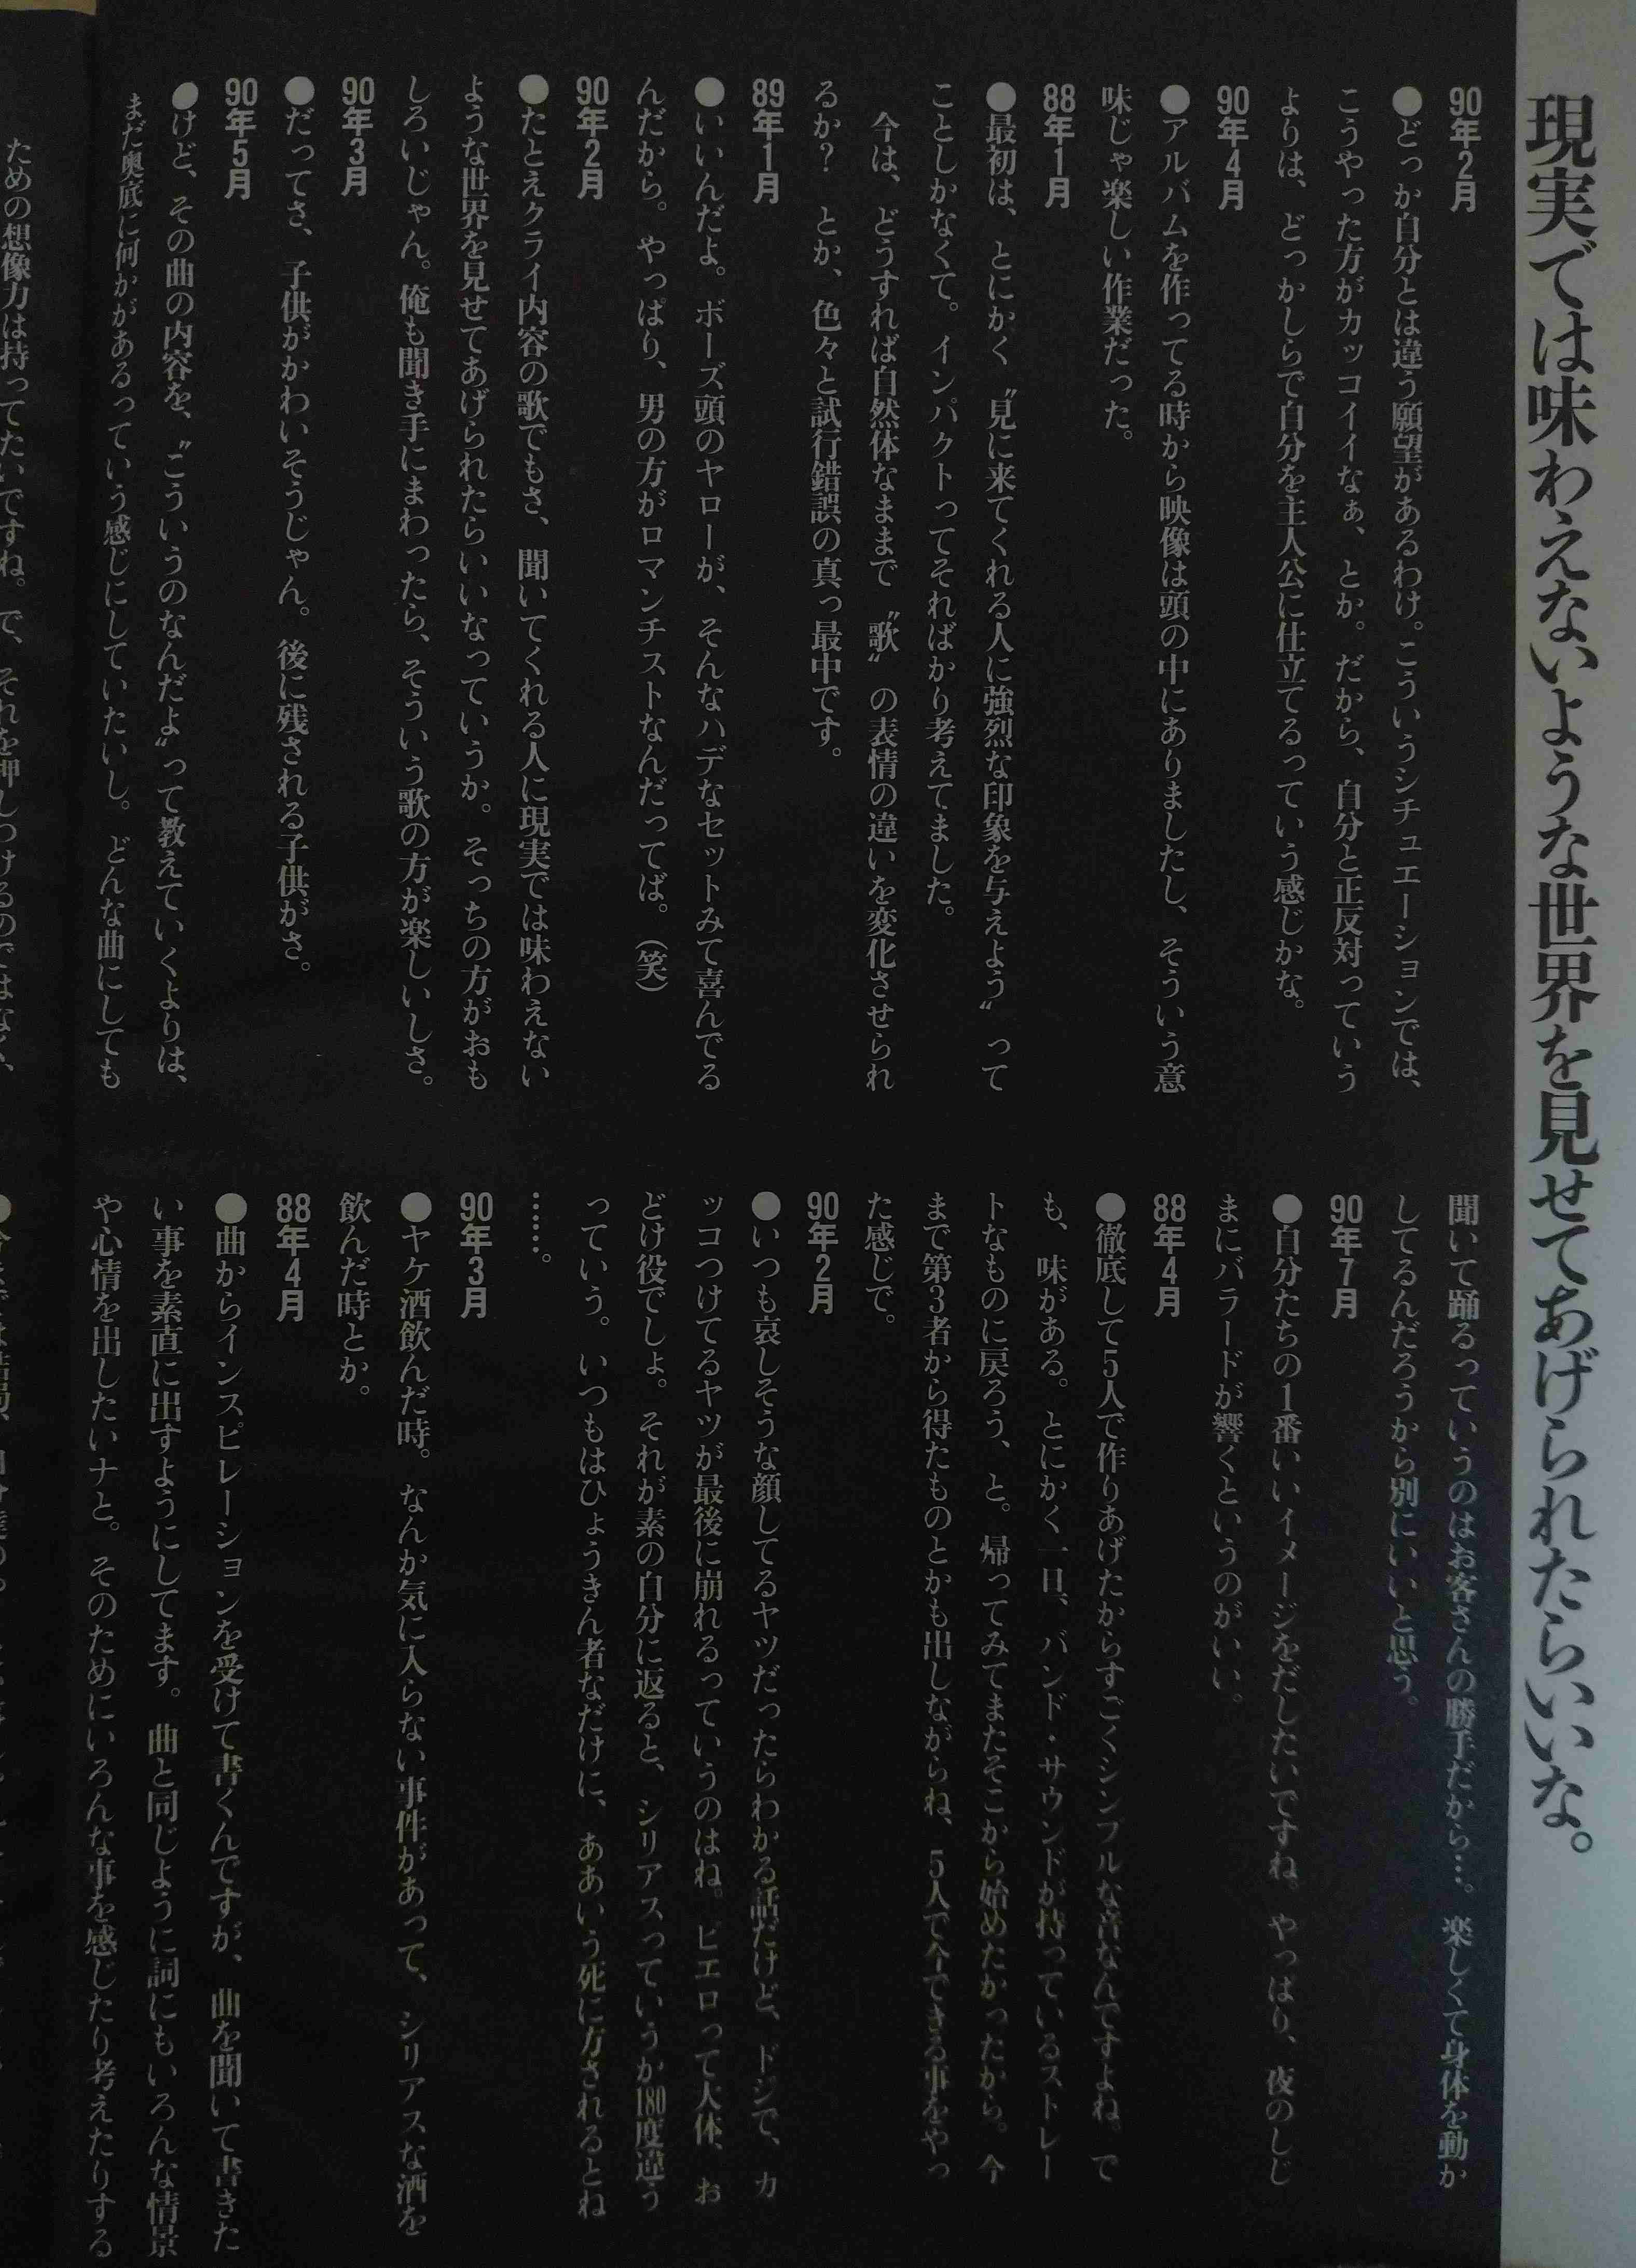 現実では味わえないような世界を見せてあげられたらいいな。
90年2月
●どっか自分とは違う願望があるわけ。こういうシチュエーションでは、
こうやった方がカッコイイなぁ、とか。だから、自分と正反対っていう
よりは、どっかしらで自分を主人公に仕立てるっていう感じかな。
90年4月
●アルバムを作ってる時から映像は頭の中にありましたし、そういう意
味じゃ楽しい作業だった。
88年1月
●最初は、とにかく〝見に来てくれる人に強烈な印象を与えよう〟って
ことしかなくて。インパクトってそればかり考えてました。
今は、どうすれば自然体なままで〝歌〟の表情の違いを変化させられ
るか? とか、色々と試行錯誤の真っ最中です。
89年1月
●いいんだよ。ボーズ頭のヤローが、そんなハデなセットみて喜んでる
んだから。やっぱり、男の方がロマンチストなんだってば。(笑)
90年2月
●たとえクライ内容の歌でもさ、聞いてくれる人に現実では味わえない
ような世界を見せてあげられたらいいなっていうか。そっちの方がおも
しろいじゃん。俺も聞き手にまわったら、そういう歌の方が楽しいしさ。
90年3月
●だってさ、子供がかわいそうじゃん。後に残される子供がさ。
90年5月
●けど、その曲の内容を、〝こういうのなんだよ〟って教えていくよりは、
まだ奥底に何かがあるっていう感じにしていたいし。どんな曲にしても
聞いて踊るっていうのはお客さんの勝手だから…。楽しくて身体を動か
してるんだろうから別にいいと思う。
90年7月
●自分たちの1番いいイメージをだしたいですね。やっぱり、夜のしじ
まにバラードが響くというのがいい。
88年4月
●徹底して5人で作りあげたからすごくシンプルな音なんですよね。で
も、味がある。とにかく一日、バンド・サウンドが持っているストレー
トなものに戻ろう、と。帰ってみてまたそこから始めたかったから。今
まで第3者から得たものとかも出しながらね、5人で今できる事をやっ
た感じで。
90年2月
●いつも哀しそうな顔してるヤツだったらわかる話だけど、ドジで、カ
ッコつけてるヤツが最後に崩れるっていうのはね。ピエロって大体、お
どけ役でしょ。それが素の自分に返ると、シリアスっていうか180度違う
っていう。いつもはひょうきん者なだけに、ああいう死に方されるとね
……。
90年3月
●ヤケ酒飲んだ時。なんか気に入らない事件があって、シリアスな酒を
飲んだ時とか。
88年4月
●曲からインスピレーションを受けて書くんですが、曲を聞いて書きた
い事を素直に出すようにしてます。曲と同じように詞にもいろんな情景
や心情を出したいナと。そのためにいろんな事を感じたり考えたりする
ための想像力は持ってたいですね。で、それを押しつけるのではなく、